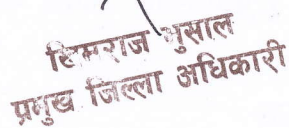 खिमराज भुसाल
प्रमुख जिल्ला अधिकारी